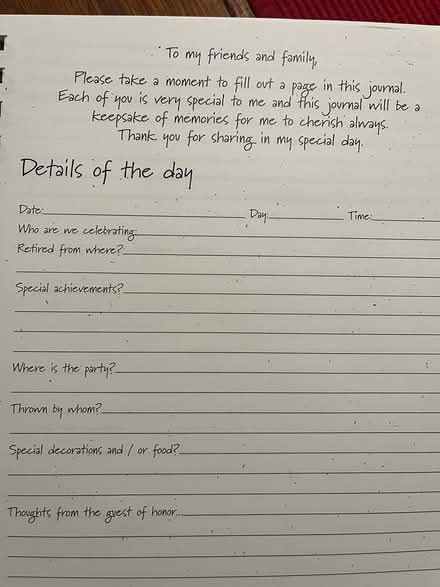 To my friends and family,
Please take a moment to fill out a page in this journal.
Each of you is very special to me and this journal will be a
keepsake of memories for me to cherish always.
Thank you for sharing in my special day.
Details of the day
Date: Day: Time:
Who are we celebrating
Retired from where?
Special achievements?
Where is the party?
Thrown by whom?
Special decorations and / or food?
Thoughts from the guest of honor